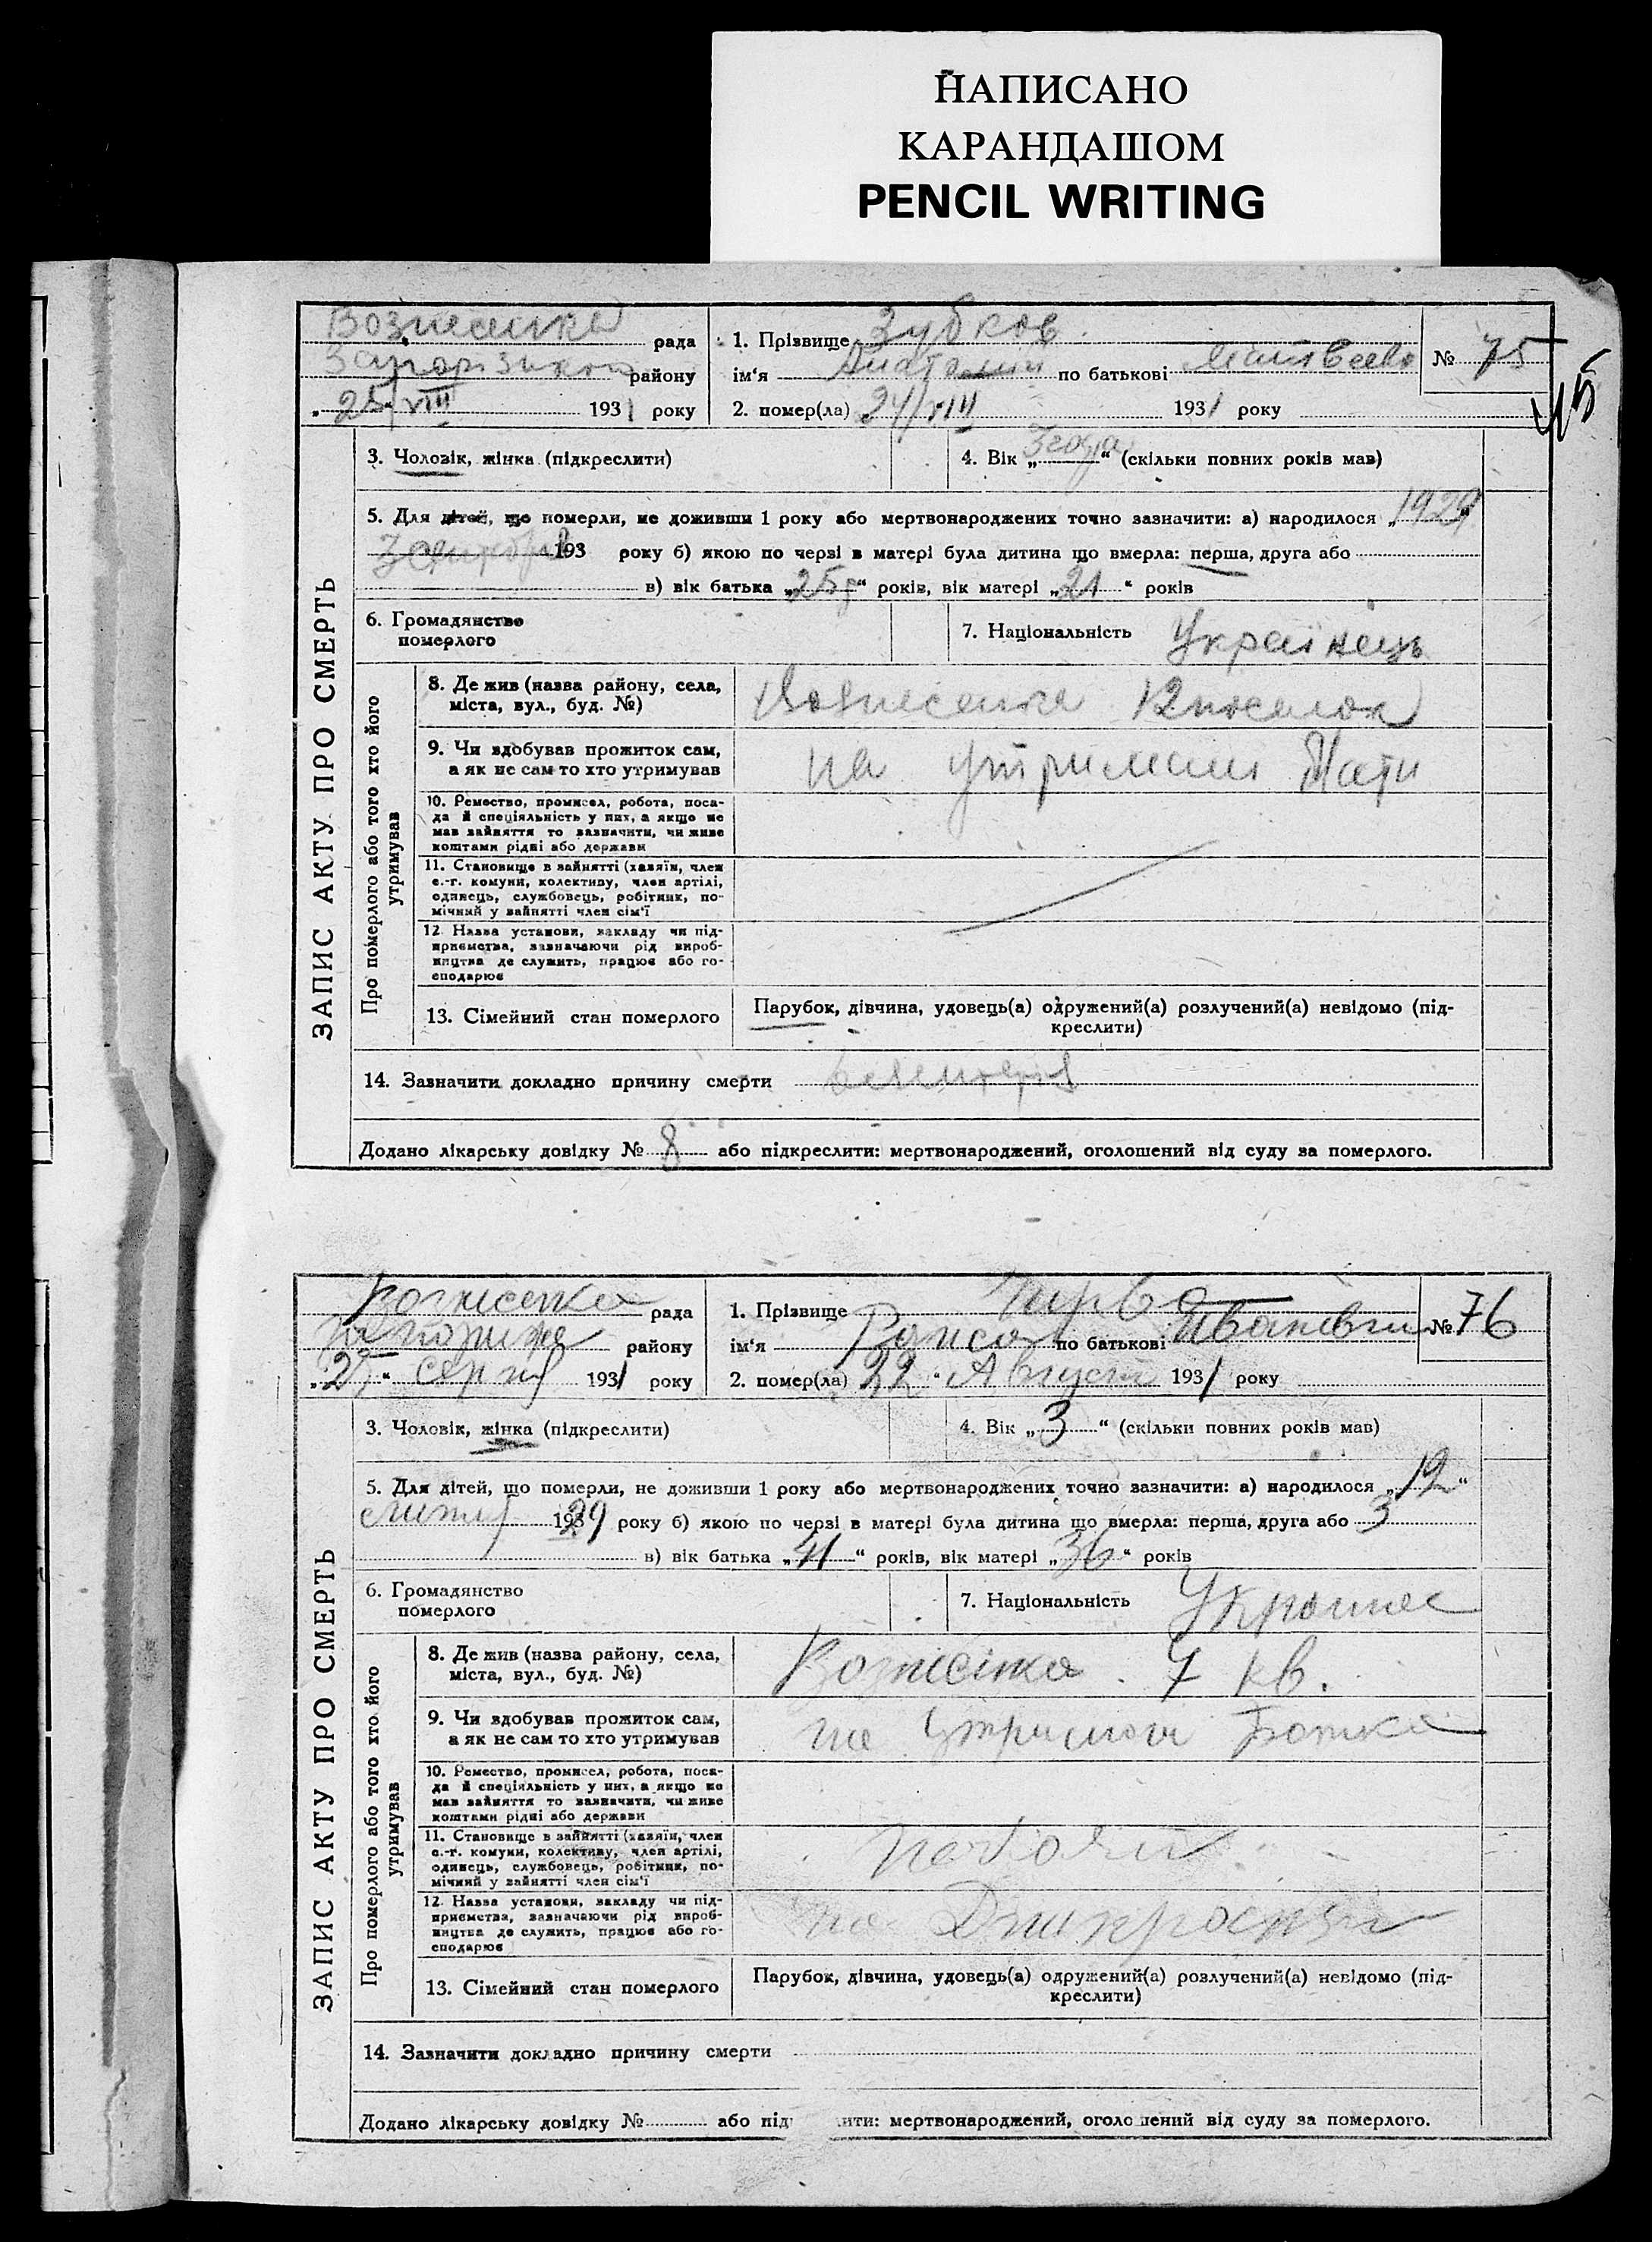 НАПИСАНО
КАРАНДАШОМ
PENCIL WRITING
Вознесенка рада
1. Прізвище Зубков
№ 75
Запорізького району
ім‘я Анатолий по батькові Матвеев
„25/VIII 1931 року
2. помер(ла) 24/VIII 1931 року
45
3. Чоловік, жінка (підкреслити)
4. Вік „3 года“ (скільки повних років мав)
5. Для дітей, що померли, не доживши 1 року або мертвонароджених точно зазначити: а) народилося „1929“
193 року б) якою по черзі в матері була дитина що вмерла: перша, друга або
в) вік батька „25“ років, вік матері „21“ років
6. Громадянство
померлого
7. Національність Українець
ЗАПИС АКТУ ПРО СМЕРТЬ
Про померлого або того хто його
утримував
8. Де жив (назва району, села,
міста, вул., буд. №)
Вознесенка 12 поселок
9. Чи здобував прожиток сам,
а як не сам то хто утримував
на утримани Мати
10. Ремество, промисел, робота, поса-
да й спеціяльність у них, а якщо не
мав зайняття то зазначити, чи живе
коштами рідні або держави
11. Становище в зайнятті (хазяїн, член
с.-г. комуни, колективу, член артілі,
одинець, службовець, робітник, по-
мічний у зайнятті член сім‘ї
12. Назва установи, закладу чи під-
приємства, зазначаючи рід вироб-
ництва де служить, працює або го-
сподарює
13. Сімейний стан померлого
Парубок, дівчина, удовець(а) одружений(а) розлучений(а) невідомо (під-
креслити)
14. Зазначити докладно причину смерти
Додано лікарську довідку № 8 або підкреслити: мертвонароджений, оголошений від суду за померлого.
Вознесенка рада
1. Прізвище
№ 76
району
ім‘я Раиса по батькові Ивановна
„25“ серпня 1931 року
2. помер(ла) 22 Август 1931 року
3. Чоловік, жінка (підкреслити)
4. Вік „3“ (скільки повних років мав)
5. Для дітей, що померли, не доживши 1 року або мертвонароджених точно зазначити: а) народилося „12“
1929 року б) якою по черзі в матері була дитина що вмерла: перша, друга або 3
в) вік батька „41“ років, вік матері „36“ років
6. Громадянство
померлого
7. Національність
ЗАПИС АКТУ ПРО СМЕРТЬ
Про померлого або того хто його
утримував
8. Де жив (назва району, села,
міста, вул., буд. №)
Вознесінка 7 кв.
9. Чи здобував прожиток сам,
а як не сам то хто утримував
на Утримани Батька
10. Ремество, промисел, робота, поса-
да й спеціяльність у них, а якщо не
мав зайняття то зазначити, чи живе
коштами рідні або держави
11. Становище в зайнятті (хазяїн, член
с.-г. комуни, колективу, член артілі,
одинець, службовець, робітник, по-
мічний у зайнятті член сім‘ї
12. Назва установи, закладу чи під-
приємства, зазначаючи рід вироб-
ництва де служить, працює або го-
сподарює
13. Сімейний стан померлого
Парубок, дівчина, удовець(а) одружений(а) розлучений(а) невідомо (під-
креслити)
14. Зазначити докладно причину смерти
Додано лікарську довідку № або підк ити: мертвонароджений, оголо ений від суду за померлого.